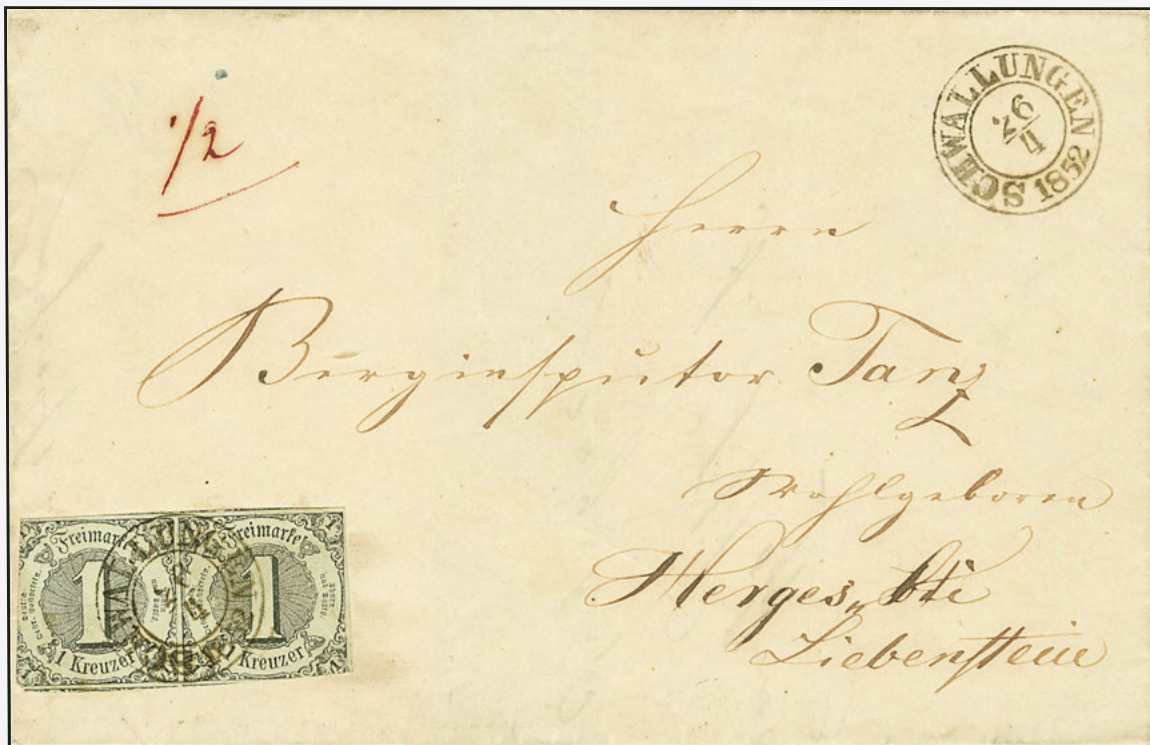 1/2
SCHWALLUNGEN
26/4
1852
Herrn
Berginspector Tanz
Wohlgeboren
Herges bei
Liebenstein
Freimarke
1
1 Kreuzer
Freimarke
1
1 Kreuzer
SCHWALLUNGEN